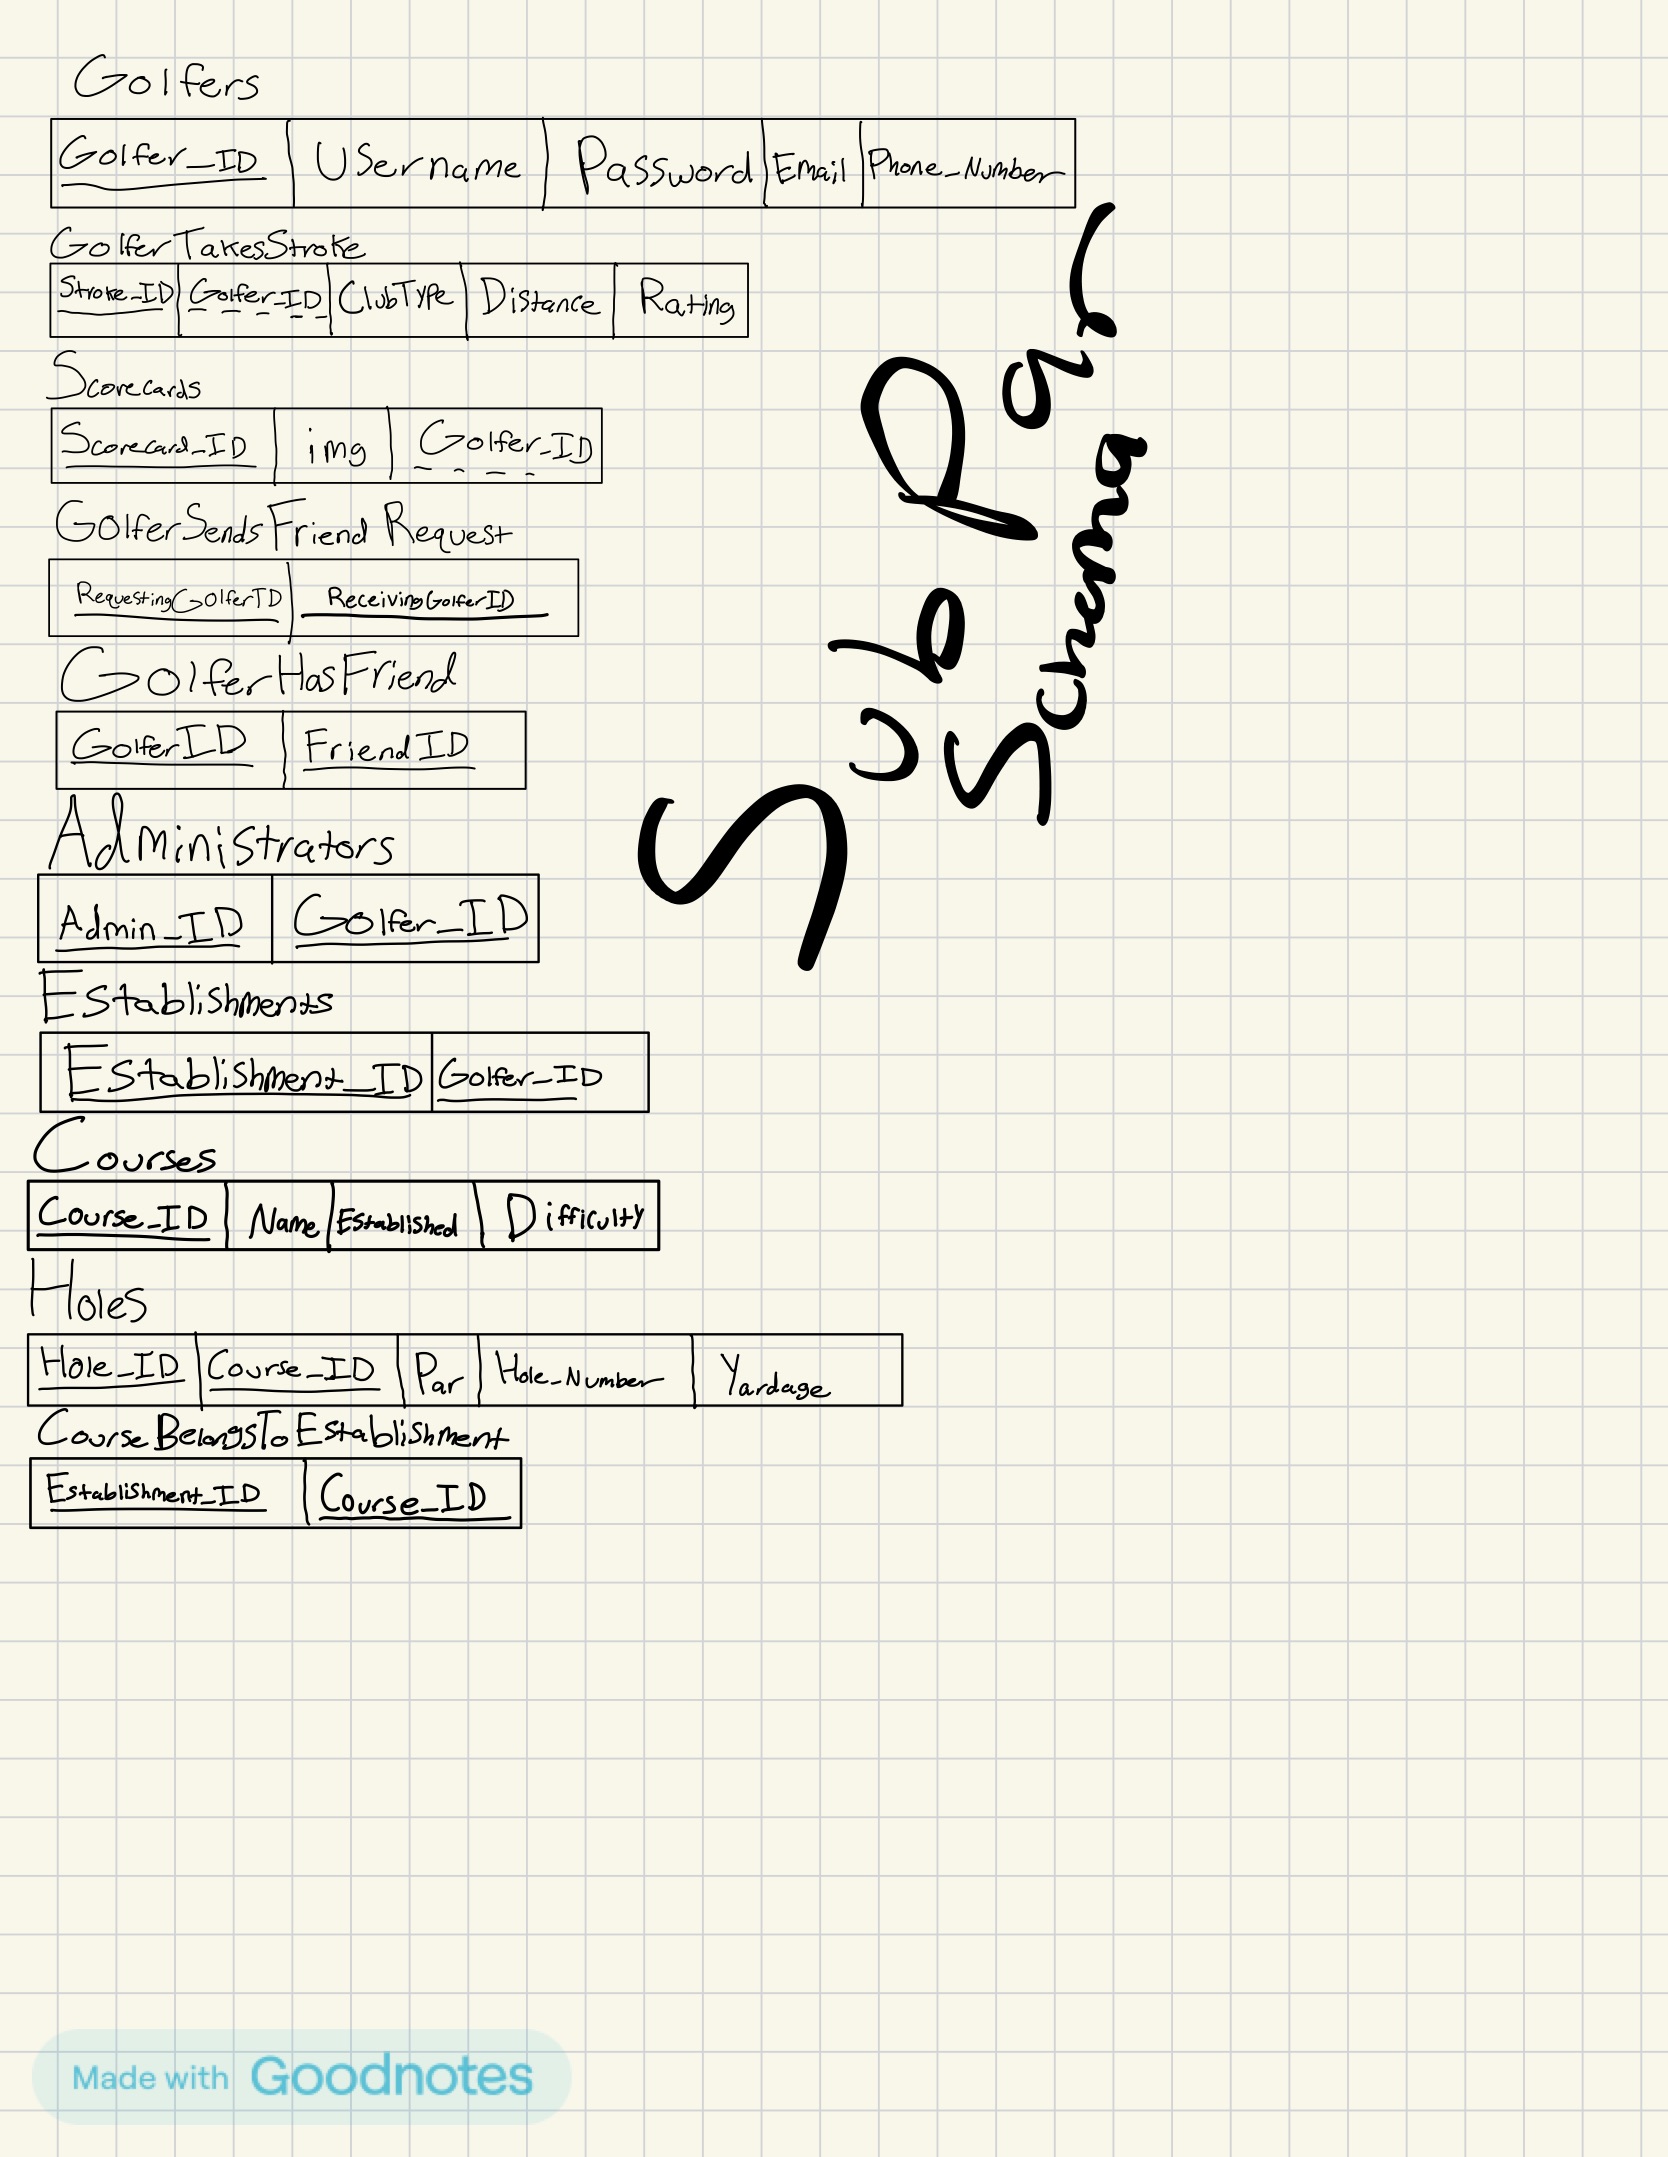 Golfers
Golfer_ID Username Password Email Phone_Number
GolferTakesStroke
Stroke_ID Golfer_ID ClubType Distance Rating
Scorecards
Scorecard_ID img Golfer_ID
GolferSendsFriendRequest
RequestingGolferID ReceivingGolferID
GolferHasFriend
GolferID FriendID
Administrators
Admin_ID Golfer_ID
Establishments
Establishment_ID Golfer_ID
Courses
Course_ID Name Established Difficulty
Holes
Hole_ID Course_ID Par Hole_Number Yardage
CourseBelongsToEstablishment
Establishment_ID Course_ID
Sub Par
Schema
Made with Goodnotes